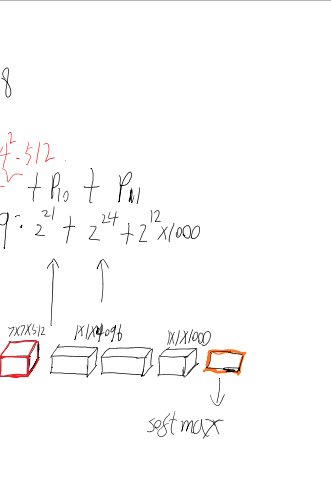 8
4²-512
+ P10 + P11
9: 2²¹ + 2²⁴ + 2¹² x1000
7x7x512 1x1x4096 1x1x1000
softmax